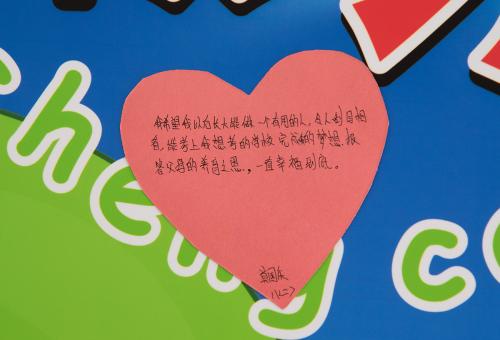 我希望我以后长大能做一个有用的人,令人刮目相
看,能考上我想考的学校,完成我的梦想,报
答父母的养育之恩,一直幸福到底。
八(二)
cheng
c